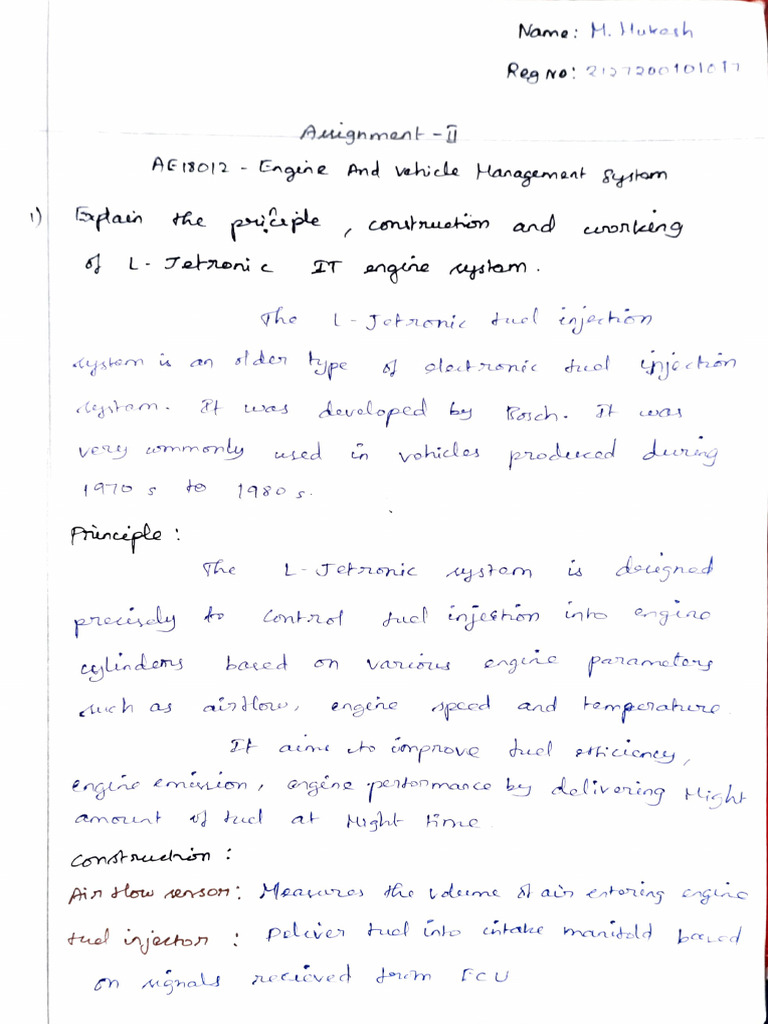 Name: M. Mukesh
Reg No: 2127200101017
Assignment - II
AE18012 - Engine And Vehicle Management System
1) Explain the priciple, construction and working
n
of L-Jetronic IT engine system.
The L-Jetronic fuel injection
system is an older type of electronic fuel injection
system. It was developed by Bosch. It was
very commonly used in vehicles produced during
1970s to 1980s.
Principle:
The L-Jetronic system is designed
precisely to control fuel injection into engine
cylinders based on various engine parameters
such as airflow, engine speed and temperature.
It aims to improve fuel efficiency,
engine emission, engine performance by delivering right
amount of fuel at right time.
Construction:
Air flow sensor: Measures the volume of air entering engine
fuel injector : Deliver fuel into intake manifold based
on signals recieved from ECU